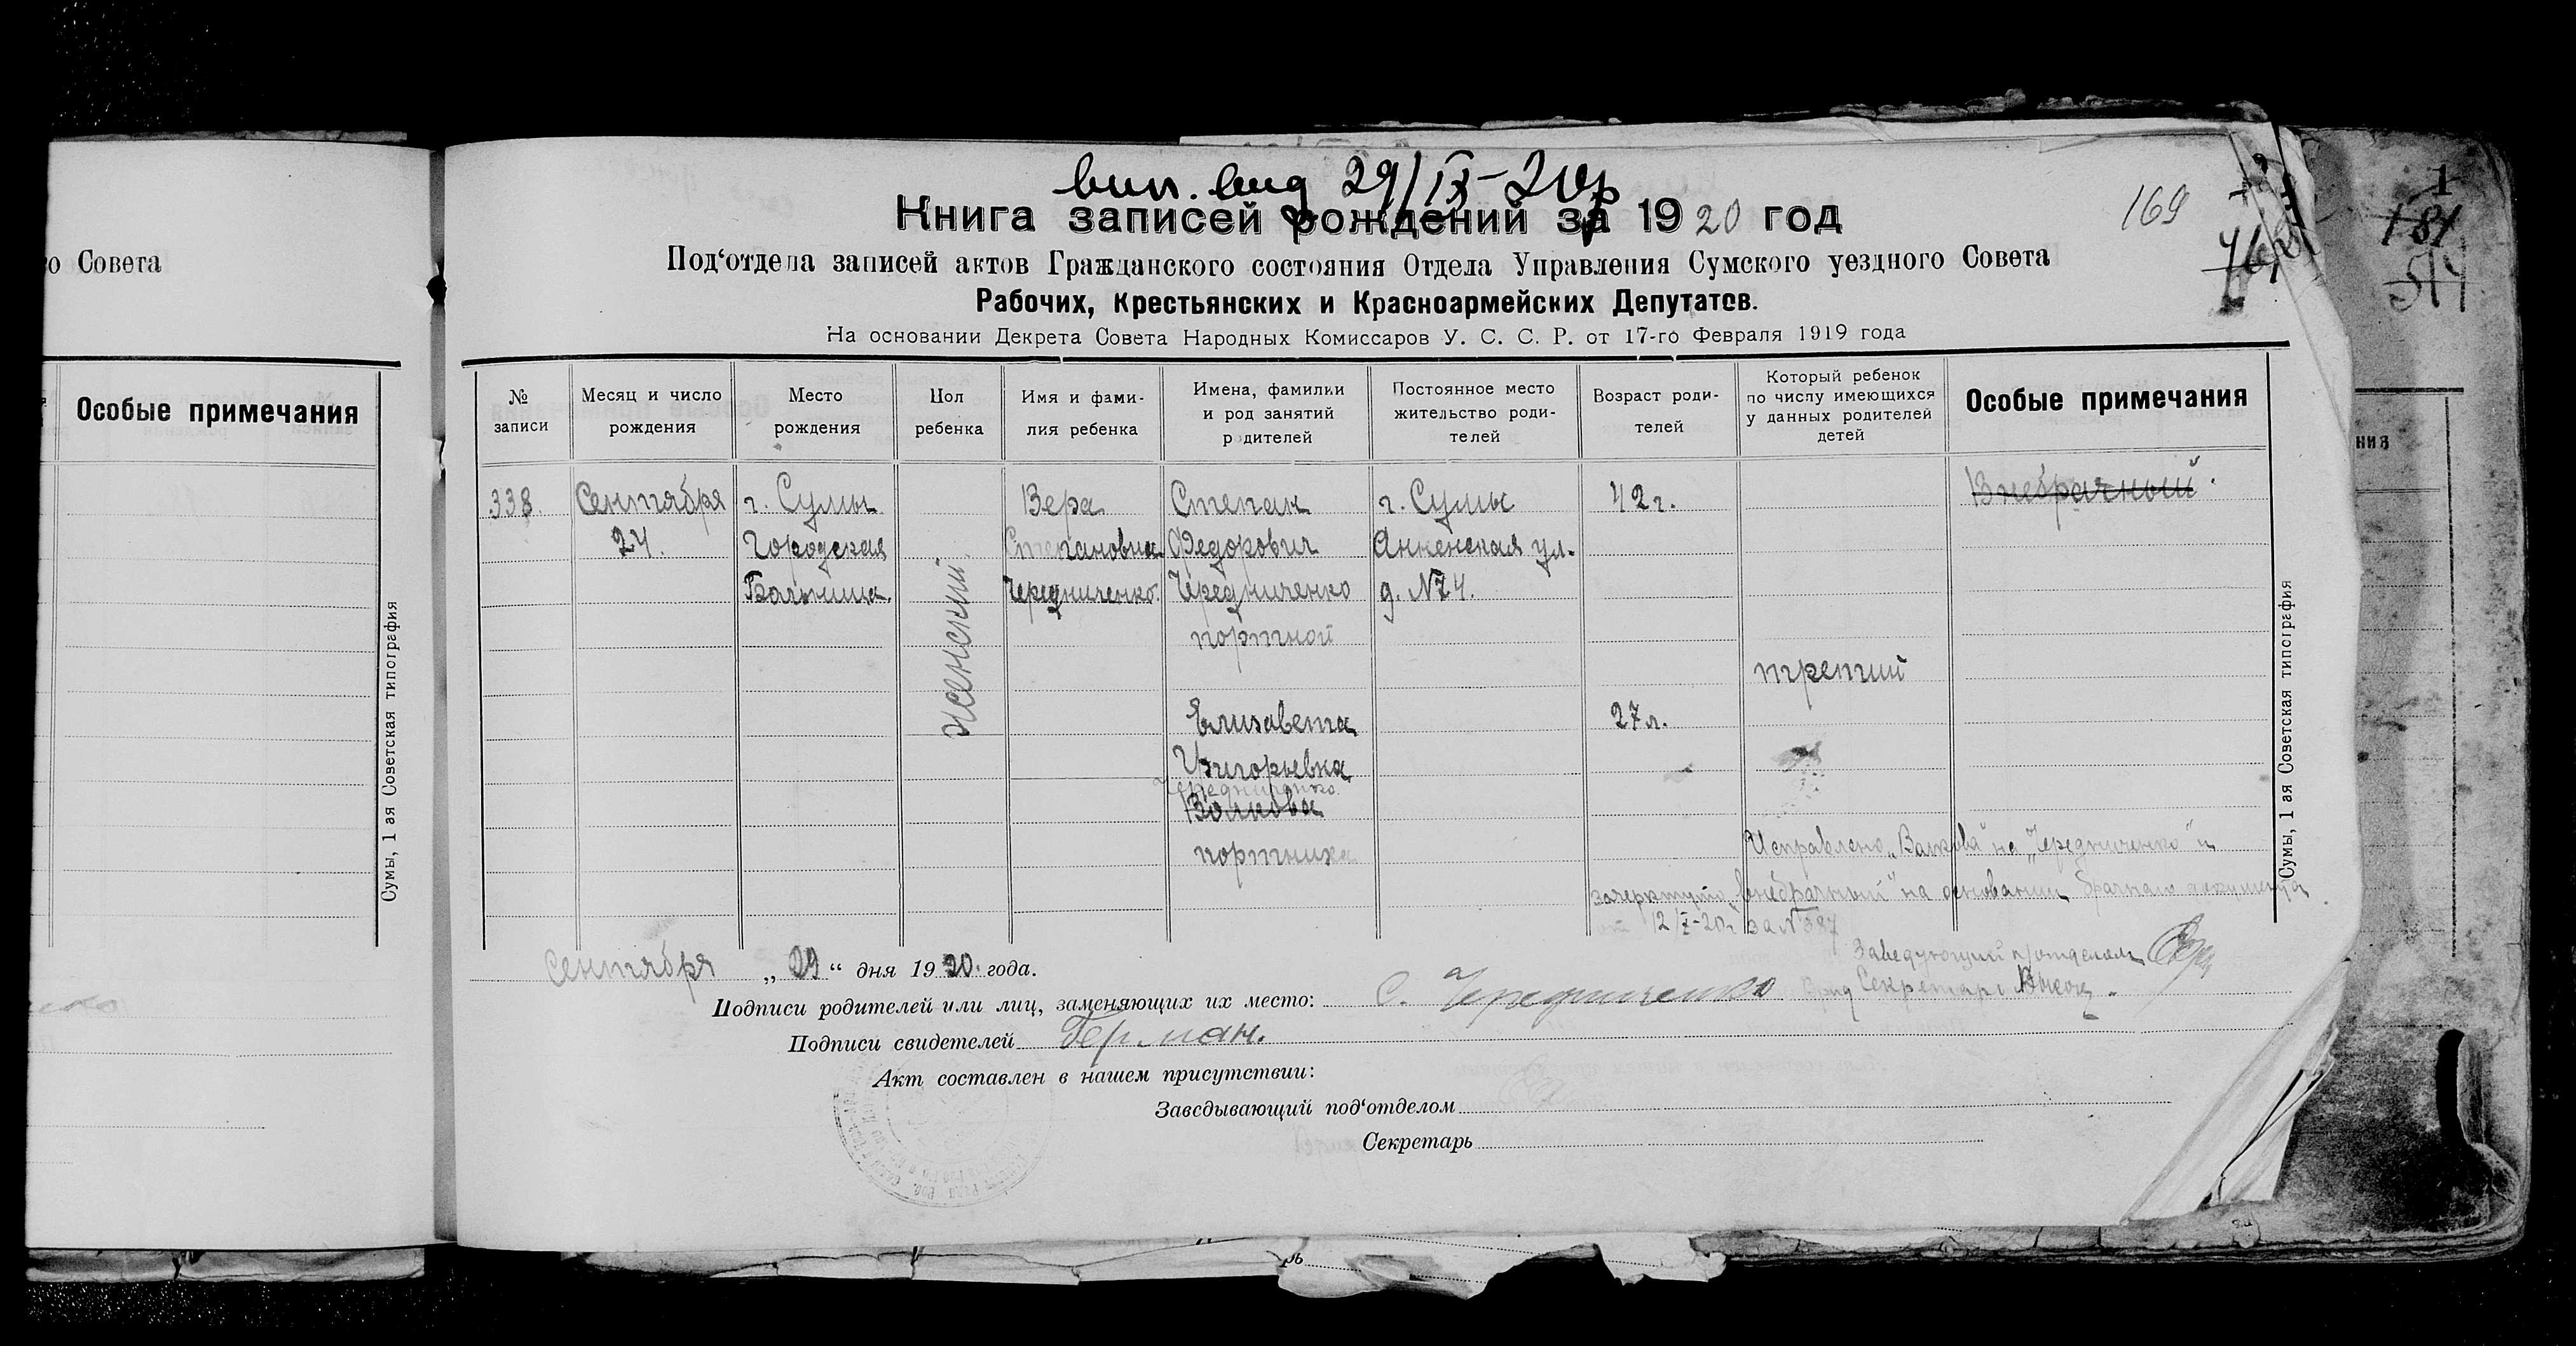 о Совета
Особые примечания
Сумы, 1 ая Советская типография
вып. выд 29/IX-20р
Книга записей рождений за 1920 год
169
Под‘отдела записей актов Гражданского состояния Отдела Управления Сумского уездного Совета
Рабочих, Крестьянских и Красноармейских Депутатов.
На основании Декрета Совета Народных Комиссаров У. С. С. Р. от 17-го Февраля 1919 года
№ записи
Месяц и число рождения
Место рождения
Пол ребенка
Имя и фами-
лия ребенка
Имена, фамилии
и род занятий
родителей
Постоянное место
жительство роди-
телей
Возраст роди-
телей
Который ребенок
по числу имеющихся
у данных родителей
детей
Особые примечания
338.
Сентября
24.
г. Сумы
Городская
Больница.
женский
Вера
Степановна
Чередниченко.
Степан
Федорович
Чередниченко
портной
Елизавета
Григорьевна
Чередниченко
Волкова
портниха
г. Сумы
Анненская ул.
д. №74.
42 г.
27 л.
третий
Внебрачный.
Исправлено „Валкова" на „Чередниченко" и
зачеркнуто „внебрачный" на основании брачнаго документа
от 12/X-20г за №387
Заведующий п/отделом
Секретарь
Сентября „29“ дня 1920. года.
Подписи родителей или лиц, заменяющих их место: С. Чередниченко
Подписи свидетелей Герман.
Акт составлен в нашем присутствии:
Заведывающий под‘отделом
Секретарь
Сумы, 1 ая Советская типография
1
181
514
ния
рь